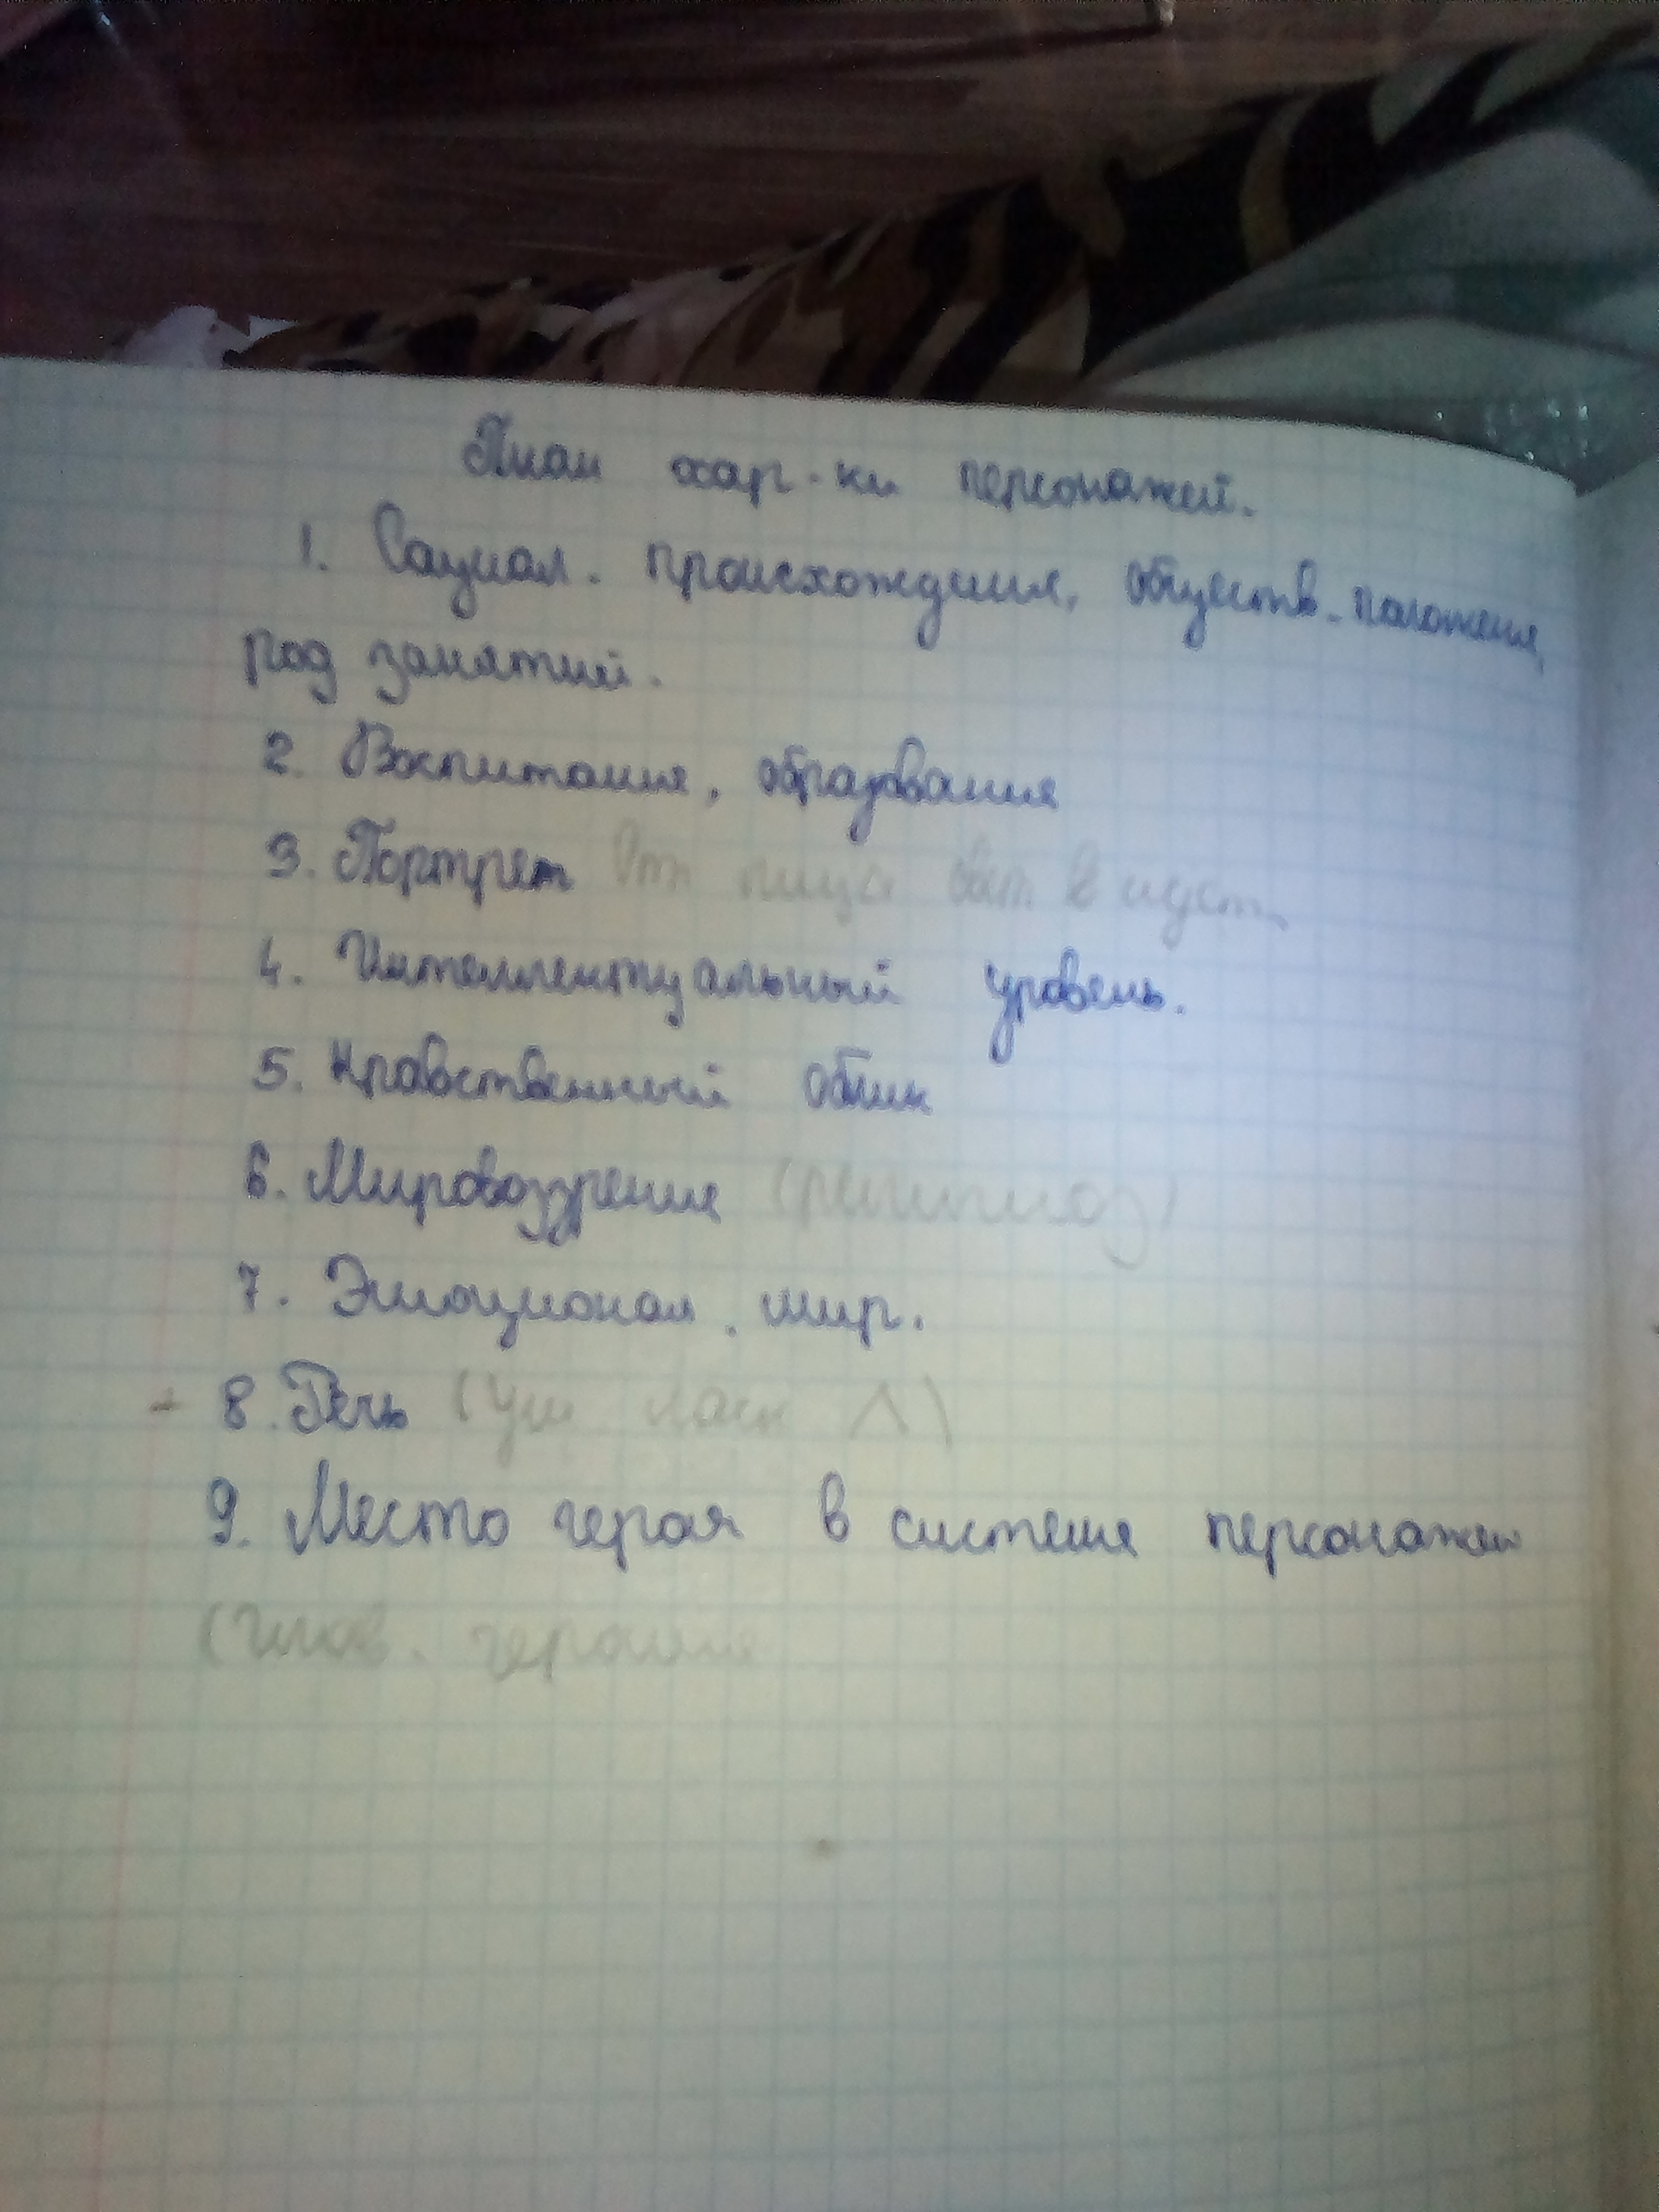 План хар-ки персонажей.
1. Социал. происхождения, обществ. положения,
род занятий.
2. Воспитания, образования
3. Портрет От лица свет идет
4. Интеллектуальный уровень.
5. Нравственный облик
6. Мировоззрения (религиоз)
7. Эмоционал. мир.
8. Речь (Ум ласк Λ)
9. Место героя в системе персонажей
(Глав. героиня